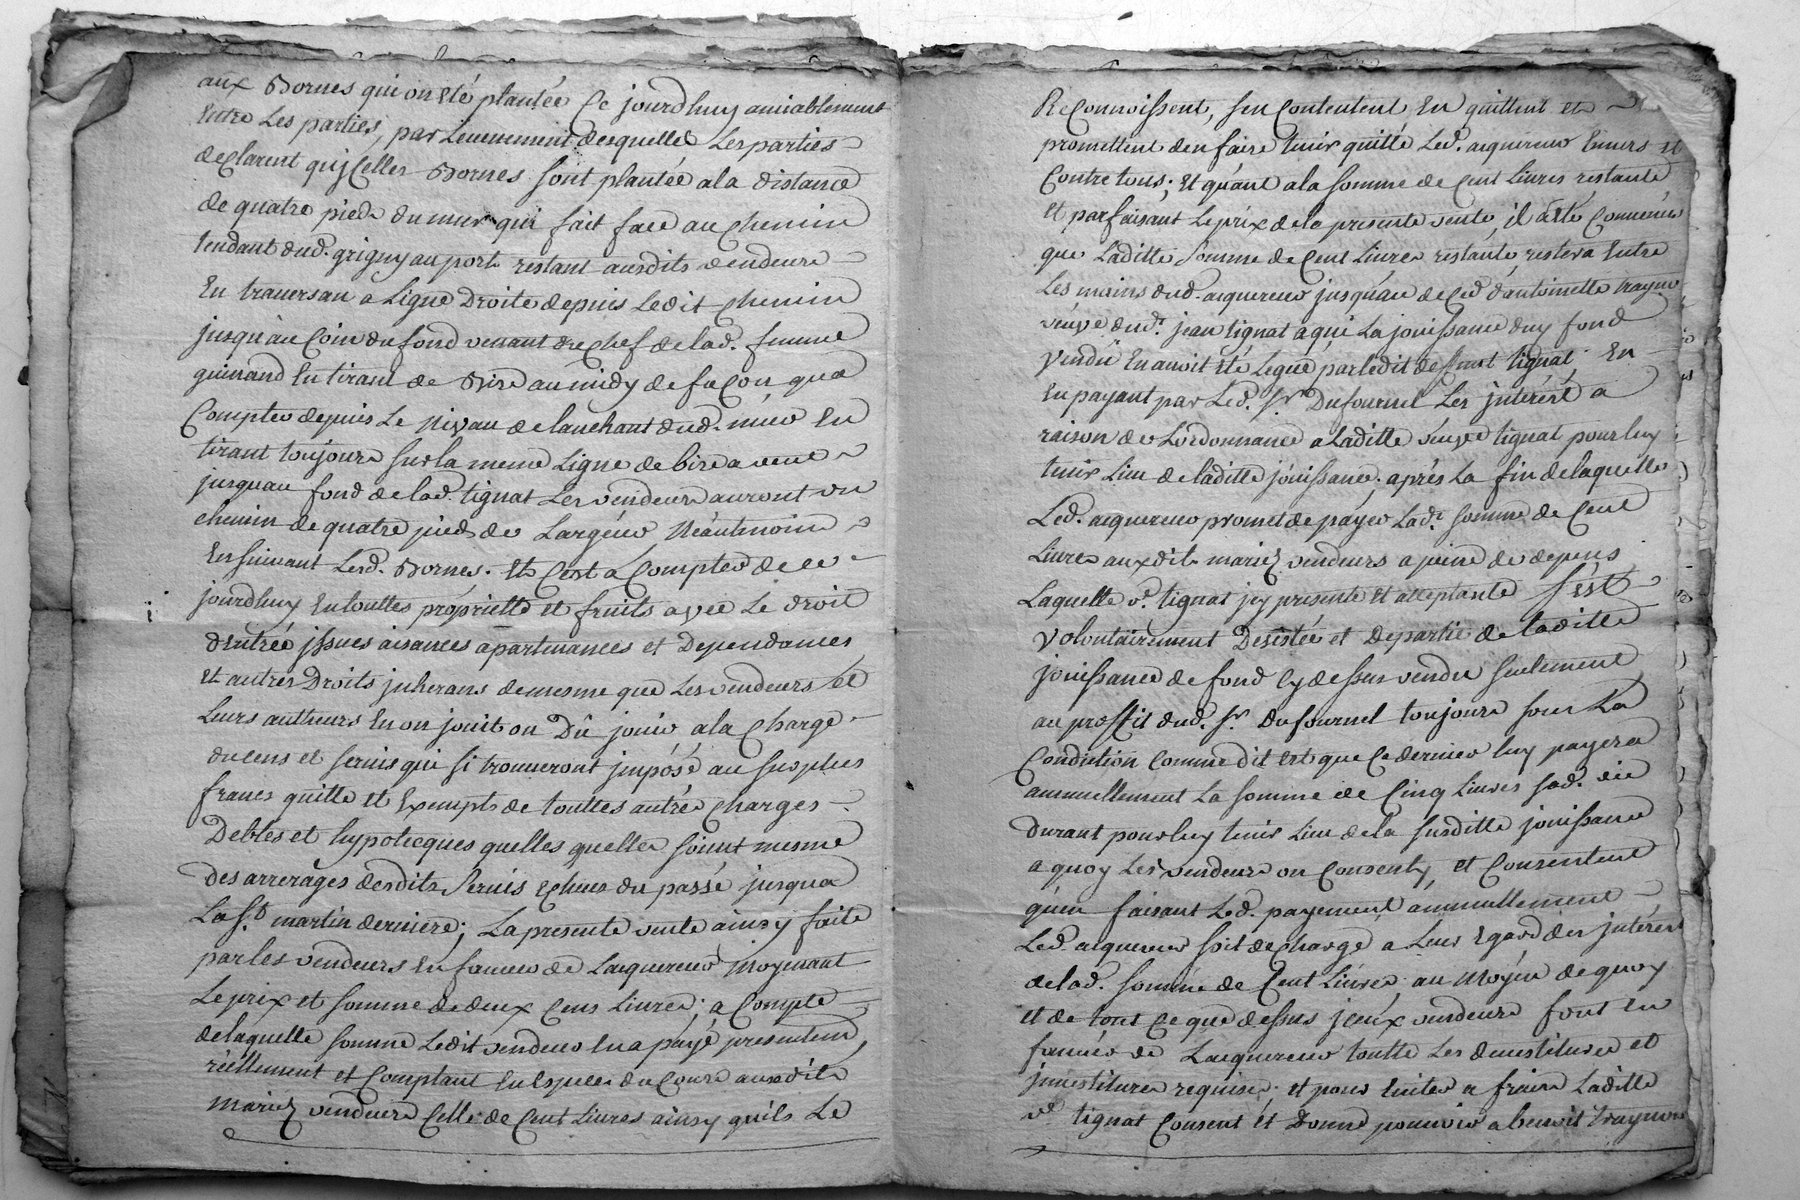 aux Bornes qui on eté plantée Ce jourdhuy amiablement
Entre Les parties, par Levenement desquelles Les parties
declarent quiçelles Bornes sont plantée ala distance
de quatre pieds du mur qui fait face au Chemin
tendant dud. grigny au port restant ausdits vendeurs
En traversan a Ligne Droite depuis Ledit Chemin
jusqu'au Coin du fond venant du Chef de lad. femme
guinand En tirant de Bize au midy de façon qua
Compter depuis Le Nivau de lauchant dud. mur En
tirant toujours sur la meme Ligne de bize a vent
jusquau fond de lad. tignat Les vendeurs auront un
chemin de quatre pieds de Largeur Néantmoins
En suivant Lesd. Bornes. Et C'est a Compter de ce
jourdhuy En touttes proprietté et fruits avec Le droit
d'Entrée jssues aisances apartenances et Dependances
Et autres Droits juherans de mesme que Les vendeurs et
Leurs autheurs En on jouit ou Dû jouir ala Charge
du cens et servis qui si trouveront jmposé au surplus
francs quitte et Exempts de touttes autres Charges
Debtes et hypotecques quelles quelles soient mesme
des arrerages desdits Servis Echus du passé jusqua
La St. martin derniere; La presente vente ainsy faite
par les vendeurs En faveur de Lacquereur Moyenant
Le prix et somme de deux Cens Livres; a Compte
de laquelle somme Ledit vendeur En a payé presentem,
réellement et Comptant En Especes du Cours ausdits
Mariez vendeurs Celle de Cent Livres ainsy quils Le
Reconnoissent, sen Contentent En quittent et
promettent den faire tenir quitte Led. acquereur Envers et
Contre tous; Et quant ala somme de Cent Livres restante
Et parfaisant Le prix dela presente vente, il a eté Convenu
que Laditte Somme de Cent Livres restante, restera Entre
Les mains dud. acquereur jusqu'au deCed d'antoinette traynar
veuve dud. jean tignat a qui La jouissance duy fond
Vendû En avoit Eté Legué par ledit deffunt tignat. En
En payant par Led. Sr. Dufournel Les jnterest a
raison de Lordonnance a Laditte veuve tignat pour luy
tenir Lieu de laditte jouissance, après La fin de laquelle
Led. acquereur promet de payer Lad. somme de Cent
Livres auxdits mariez vendeurs a peine de depens
Laquelle ve. tignat jcy presente Et acceptante s'est
Volontairement Desistée et departie de laditte
jouissance de fond Cy dessus vendu seulement
au proffit dud. Sr. Dufournel toujours sous La
Condition Comme dit est que Ce dernier luy payera
annuellement La somme de Cinq Livres sad. vie
Durant pour luy tenir Lieu de la susditte jouissance
a quoy Les vendeurs on Consenty, et Consentent
qu'en faisant Led. payement annuellement
Led. acquereur soit decharge a Leur Egard des jnterest
de lad. somme de Cent Livres, au Moyen de quoy
et de tout Ce que dessus jceux vendeurs font En
faveur de Lacquereur toutte Les devestitures et
jnvestitures requise; et pour Eviter a frais Laditte
ve. tignat Consent et Donne pouvoir a benoit traynar